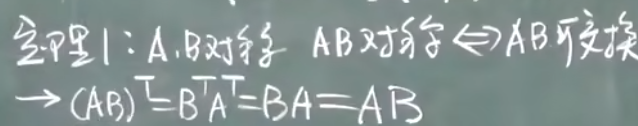 定理1:A.B对称 AB对称⇔AB可交换
→(AB)ᵀ=BᵀAᵀ=BA=AB